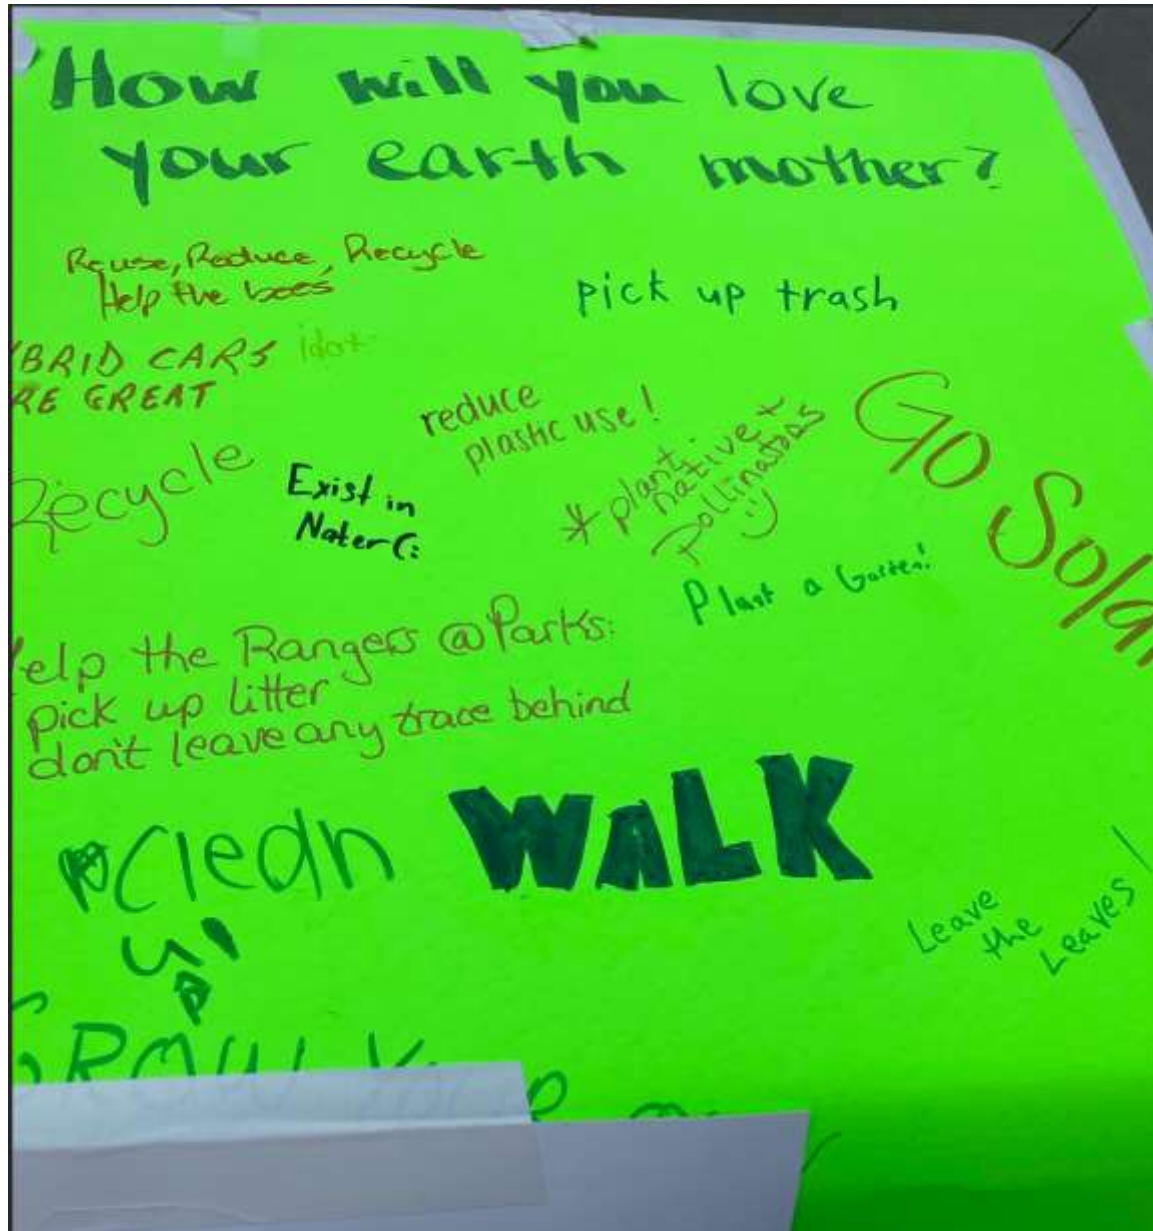 How will you love
your earth mother?
Reuse, Reduce, Recycle
Help the bees
pick up trash
BRID CARS
RE GREAT
reduce
plastic use!
Go Solar
Recycle
Exist in
Nater (:
* plant
native +
Pollinators
:)
Plant a Garten!
elp the Rangers @ Parks:
pick up litter
don't leave any trace behind
Clean
up
WALK
Leave
the
Leaves!
GROW